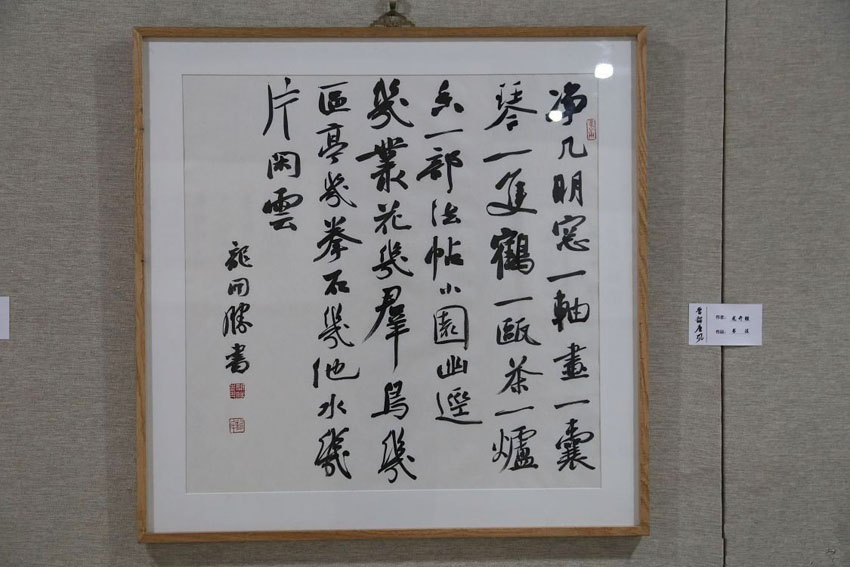 净几明窓一軸畫一囊
琴一隻鶴一甌茶一爐
香一部法帖小園幽逕
幾叢花幾羣鳥幾
區亭幾拳石幾池水幾
片閑雲
龍開勝書
作者：龙开胜
作品：书法